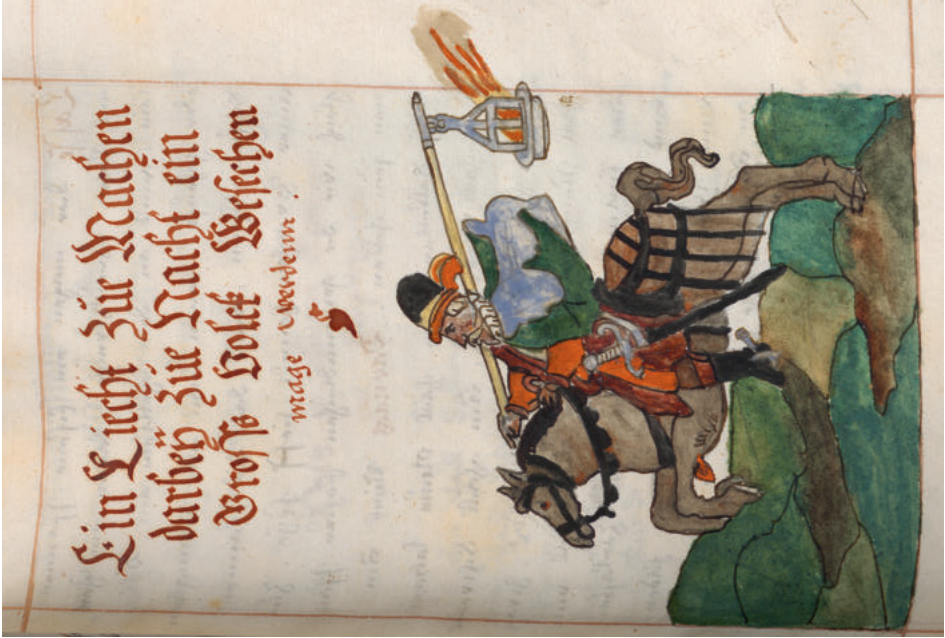 Ein Liecht Zúe Machen
darbeÿ Zúe Nacht ein
Groſſs Volck Geſechen
mage werdenn: